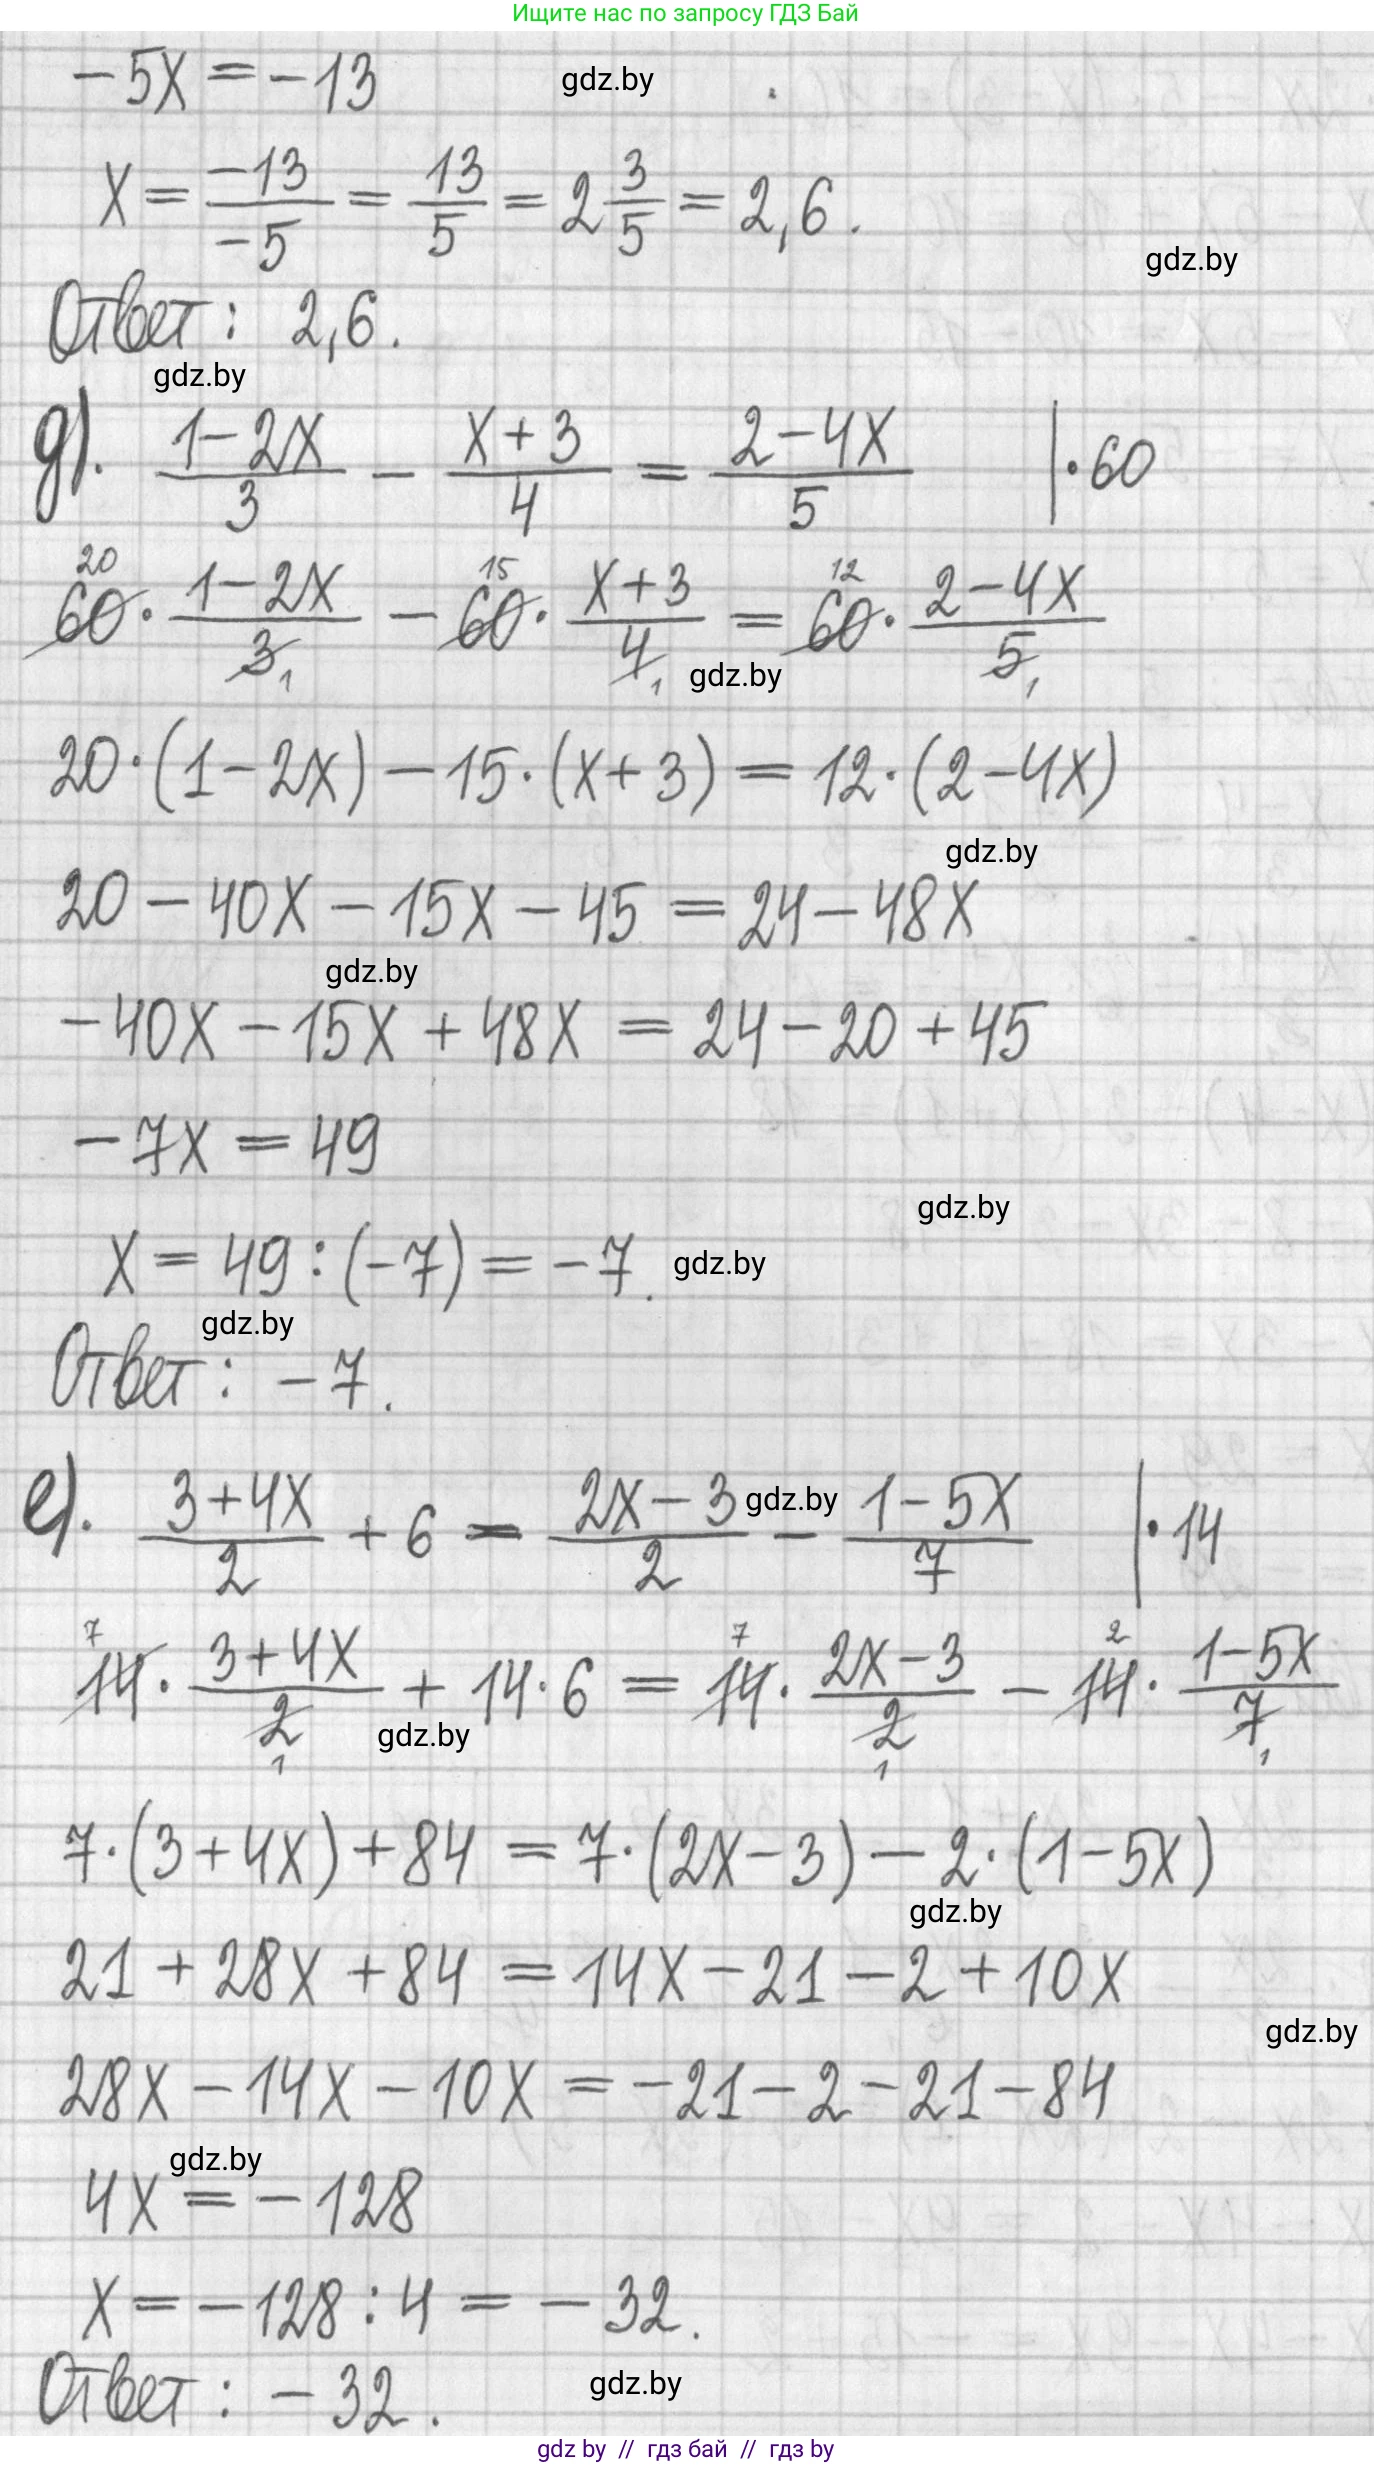 Ищите нас по запросу ГДЗ Бай
-5x = -13 gdz.by
x = -13/-5 = 13/5 = 2 3/5 = 2,6.
gdz.by
Ответ: 2,6.
gdz.by
д). (1-2x)/3 - (x+3)/4 = (2-4x)/5 | ·60
20 15 12
60 · (1-2x)/3 - 60 · (x+3)/4 = 60 · (2-4x)/5
1 1 gdz.by 1
20·(1-2x) - 15·(x+3) = 12·(2-4x)
gdz.by
20 - 40x - 15x - 45 = 24 - 48x
gdz.by
-40x - 15x + 48x = 24 - 20 + 45
-7x = 49
gdz.by
x = 49 : (-7) = -7. gdz.by
gdz.by
Ответ: -7.
е). (3+4x)/2 + 6 = (2x-3)/2 gdz.by - (1-5x)/7 | ·14
7 7 2
14 · (3+4x)/2 + 14·6 = 14 · (2x-3)/2 - 14 · (1-5x)/7
1 gdz.by 1 1
7·(3+4x) + 84 = 7·(2x-3) - 2·(1-5x)
gdz.by
21 + 28x + 84 = 14x - 21 - 2 + 10x
gdz.by
28x - 14x - 10x = -21 - 2 - 21 - 84
gdz.by
4x = -128
x = -128 : 4 = -32.
Ответ: -32. gdz.by
gdz by // гдз бай // гдз by